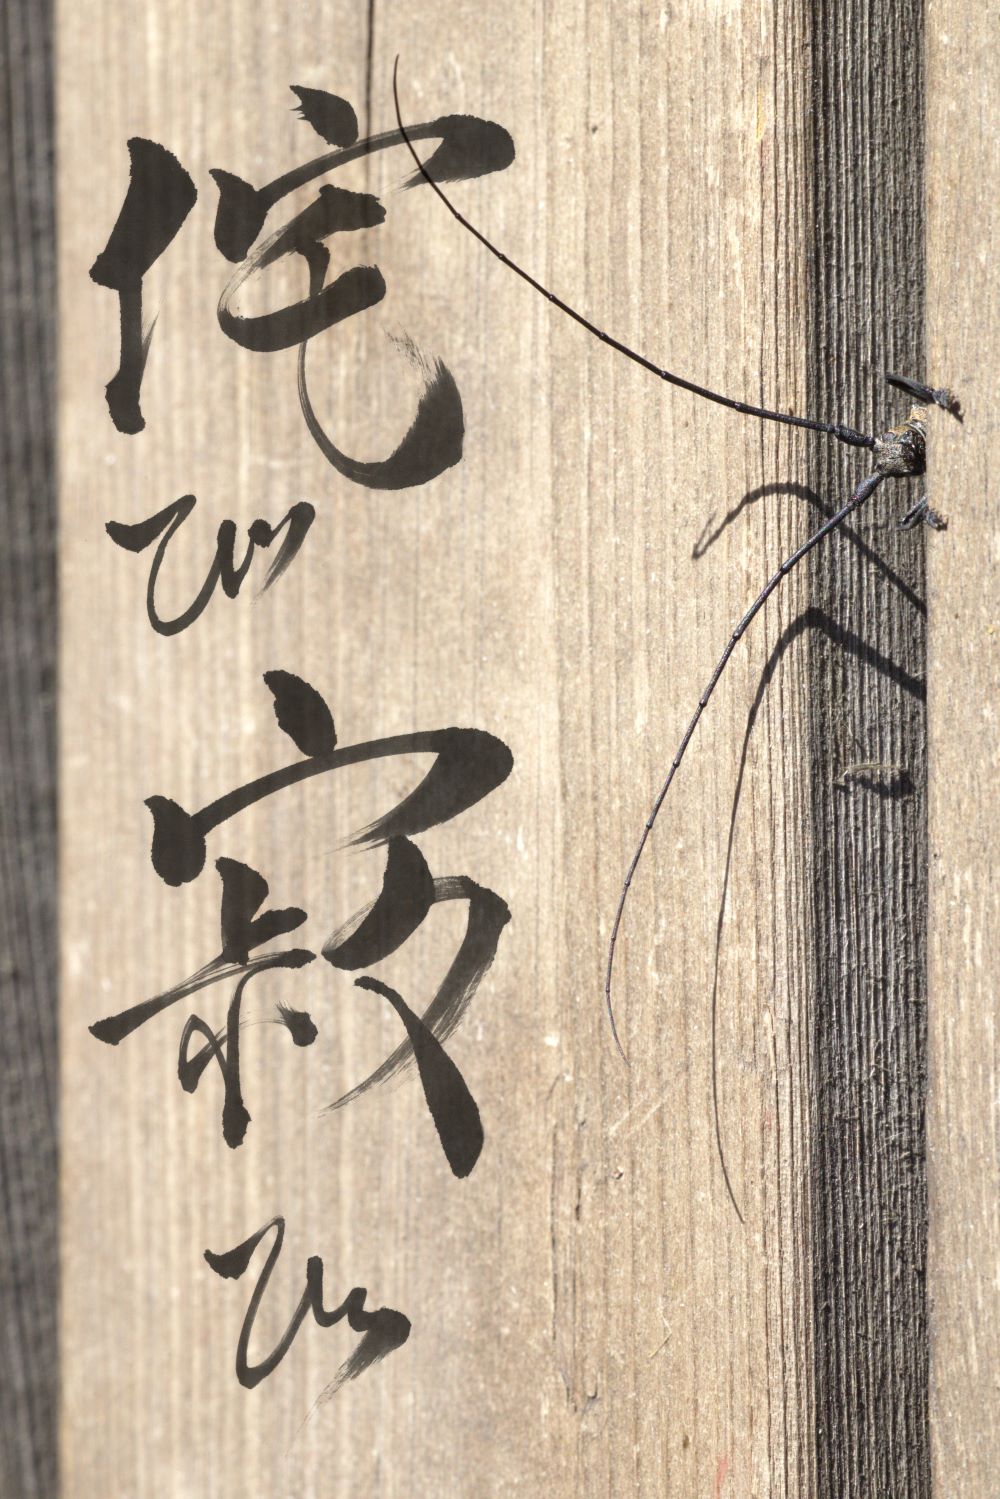 侘び寂び